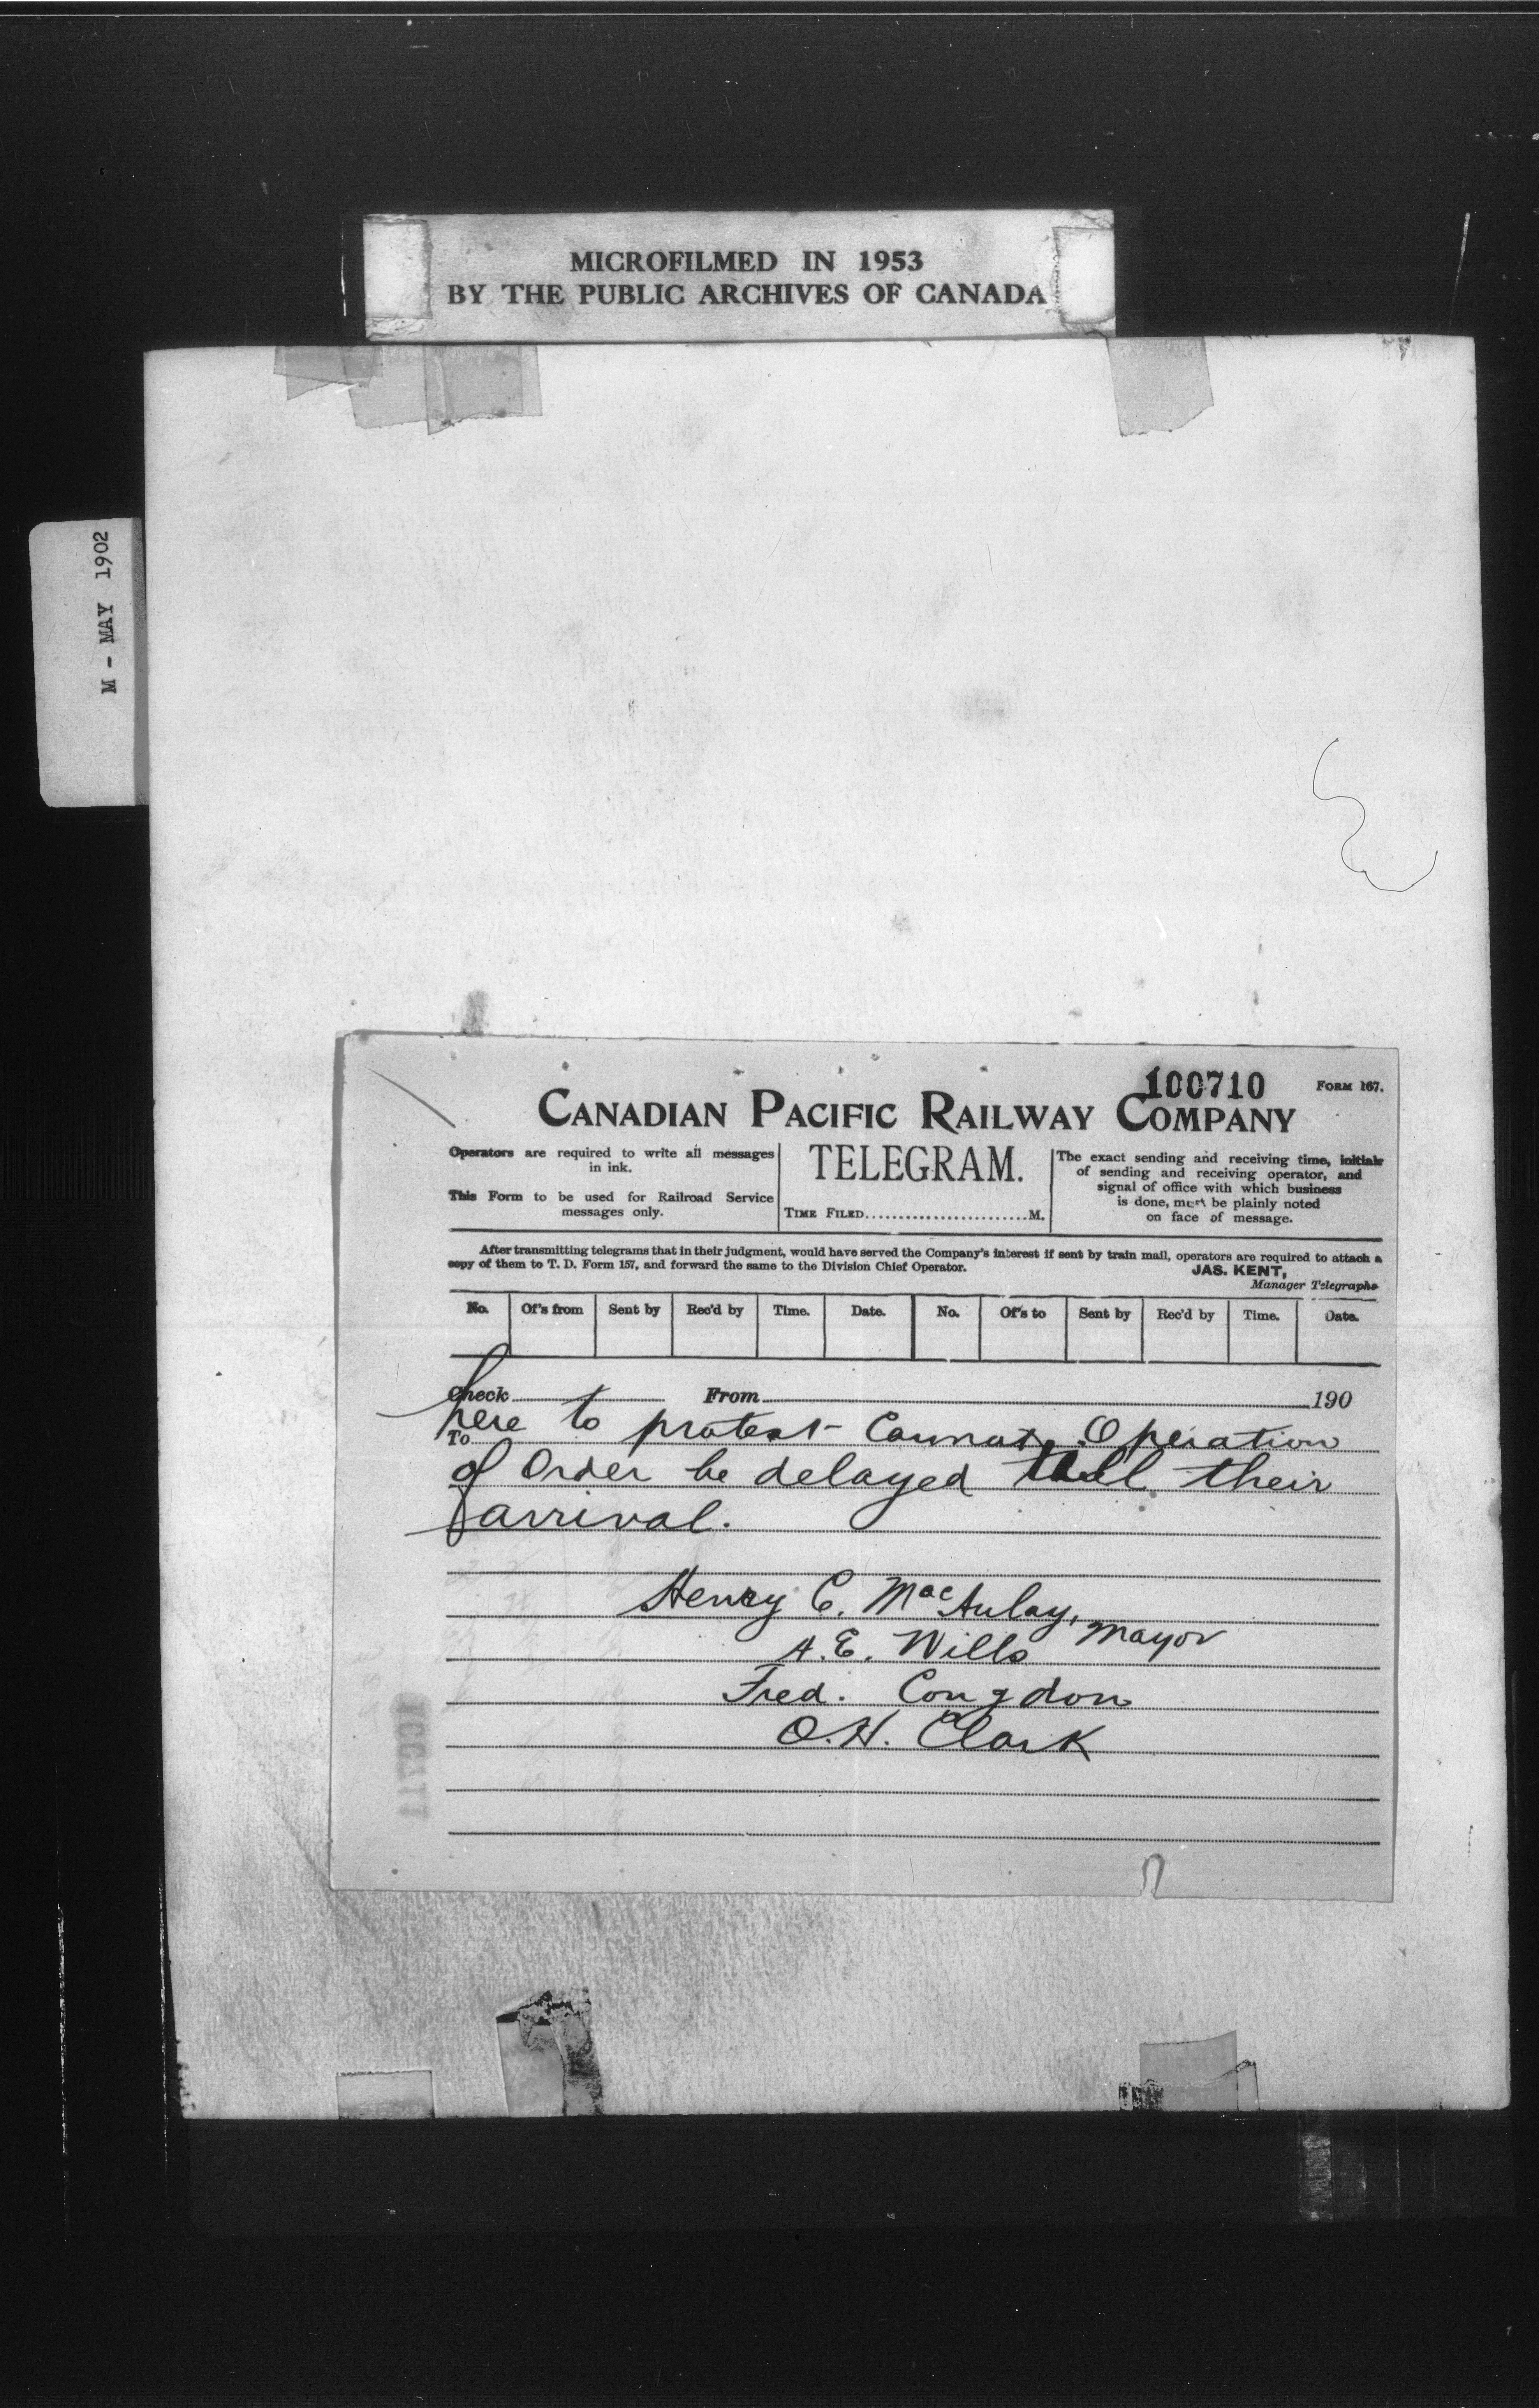 MICROFILMED IN 1953
BY THE PUBLIC ARCHIVES OF CANADA
M - MAY 1902
100710
FORM 167.
CANADIAN PACIFIC RAILWAY COMPANY
Operators are required to write all messages
in ink.
This Form to be used for Railroad Service
messages only.
TELEGRAM.
TIME FILED........................M.
The exact sending and receiving time, initials
of sending and receiving operator, and
signal of office with which business
is done, must be plainly noted
on face of message.
After transmitting telegrams that in their judgment, would have served the Company's interest if sent by train mail, operators are required to attach a
copy of them to T. D. Form 157, and forward the same to the Division Chief Operator.
JAS. KENT,
Manager Telegraphs
No. Of's from Sent by Rec'd by Time. Date. No. Of's to Sent by Rec'd by Time. Date.
Check From 190
To
here to protest Cannot Operation
of Order be delayed till their
arrival.
Henry C. MacAulay,
Mayor
A. E. Wills
Fred. Congdon
O. H. Clark
100711